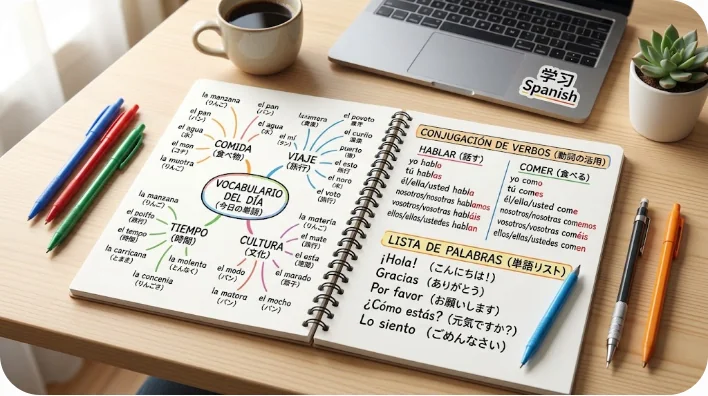 学习
Spanish
la manzana
(りんご)
el pan
(パン)
el pan
(パン)
el agua
(水)
el agua
el mon
la muetra
(りんご)
COMIDA
(食べ物)
el mí
VIAJE
(旅行)
el povoto
el curlio
puerto
el esta
el noro
el voto
(旅行)
VOCABULARIO
DEL DÍA
(今日の単語)
la manzana
(りんご)
el poiffo
el tempo
(時間)
la carricana
(とまま)
la concenia
la molento
(とんなく)
TIEMPO
(時間)
CULTURA
(文化)
la materia
(りんご)
el mate
(旅行)
el esta
el marado
el mocho
(パン)
el modo
(パン)
la matora
(パン)
CONJUGACIÓN DE VERBOS (動詞の活用)
HABLAR (話す)
yo hablo
tú hablas
él/ella/usted habla
nosotros/nosotras hablamos
vosotros/vosotras habláis
ellos/ellas/ustedes hablan
COMER (食べる)
yo como
tú comes
él/ella/usted come
nosotros/nosotras comemos
vosotros/vosotras coméis
ellos/ellas/ustedes comen
LISTA DE PALABRAS (単語リスト)
¡Hola! (こんにちは!)
Gracias (ありがとう)
Por favor (お願いします)
¿Cómo estás? (元気ですか?)
Lo siento (ごめんなさい)